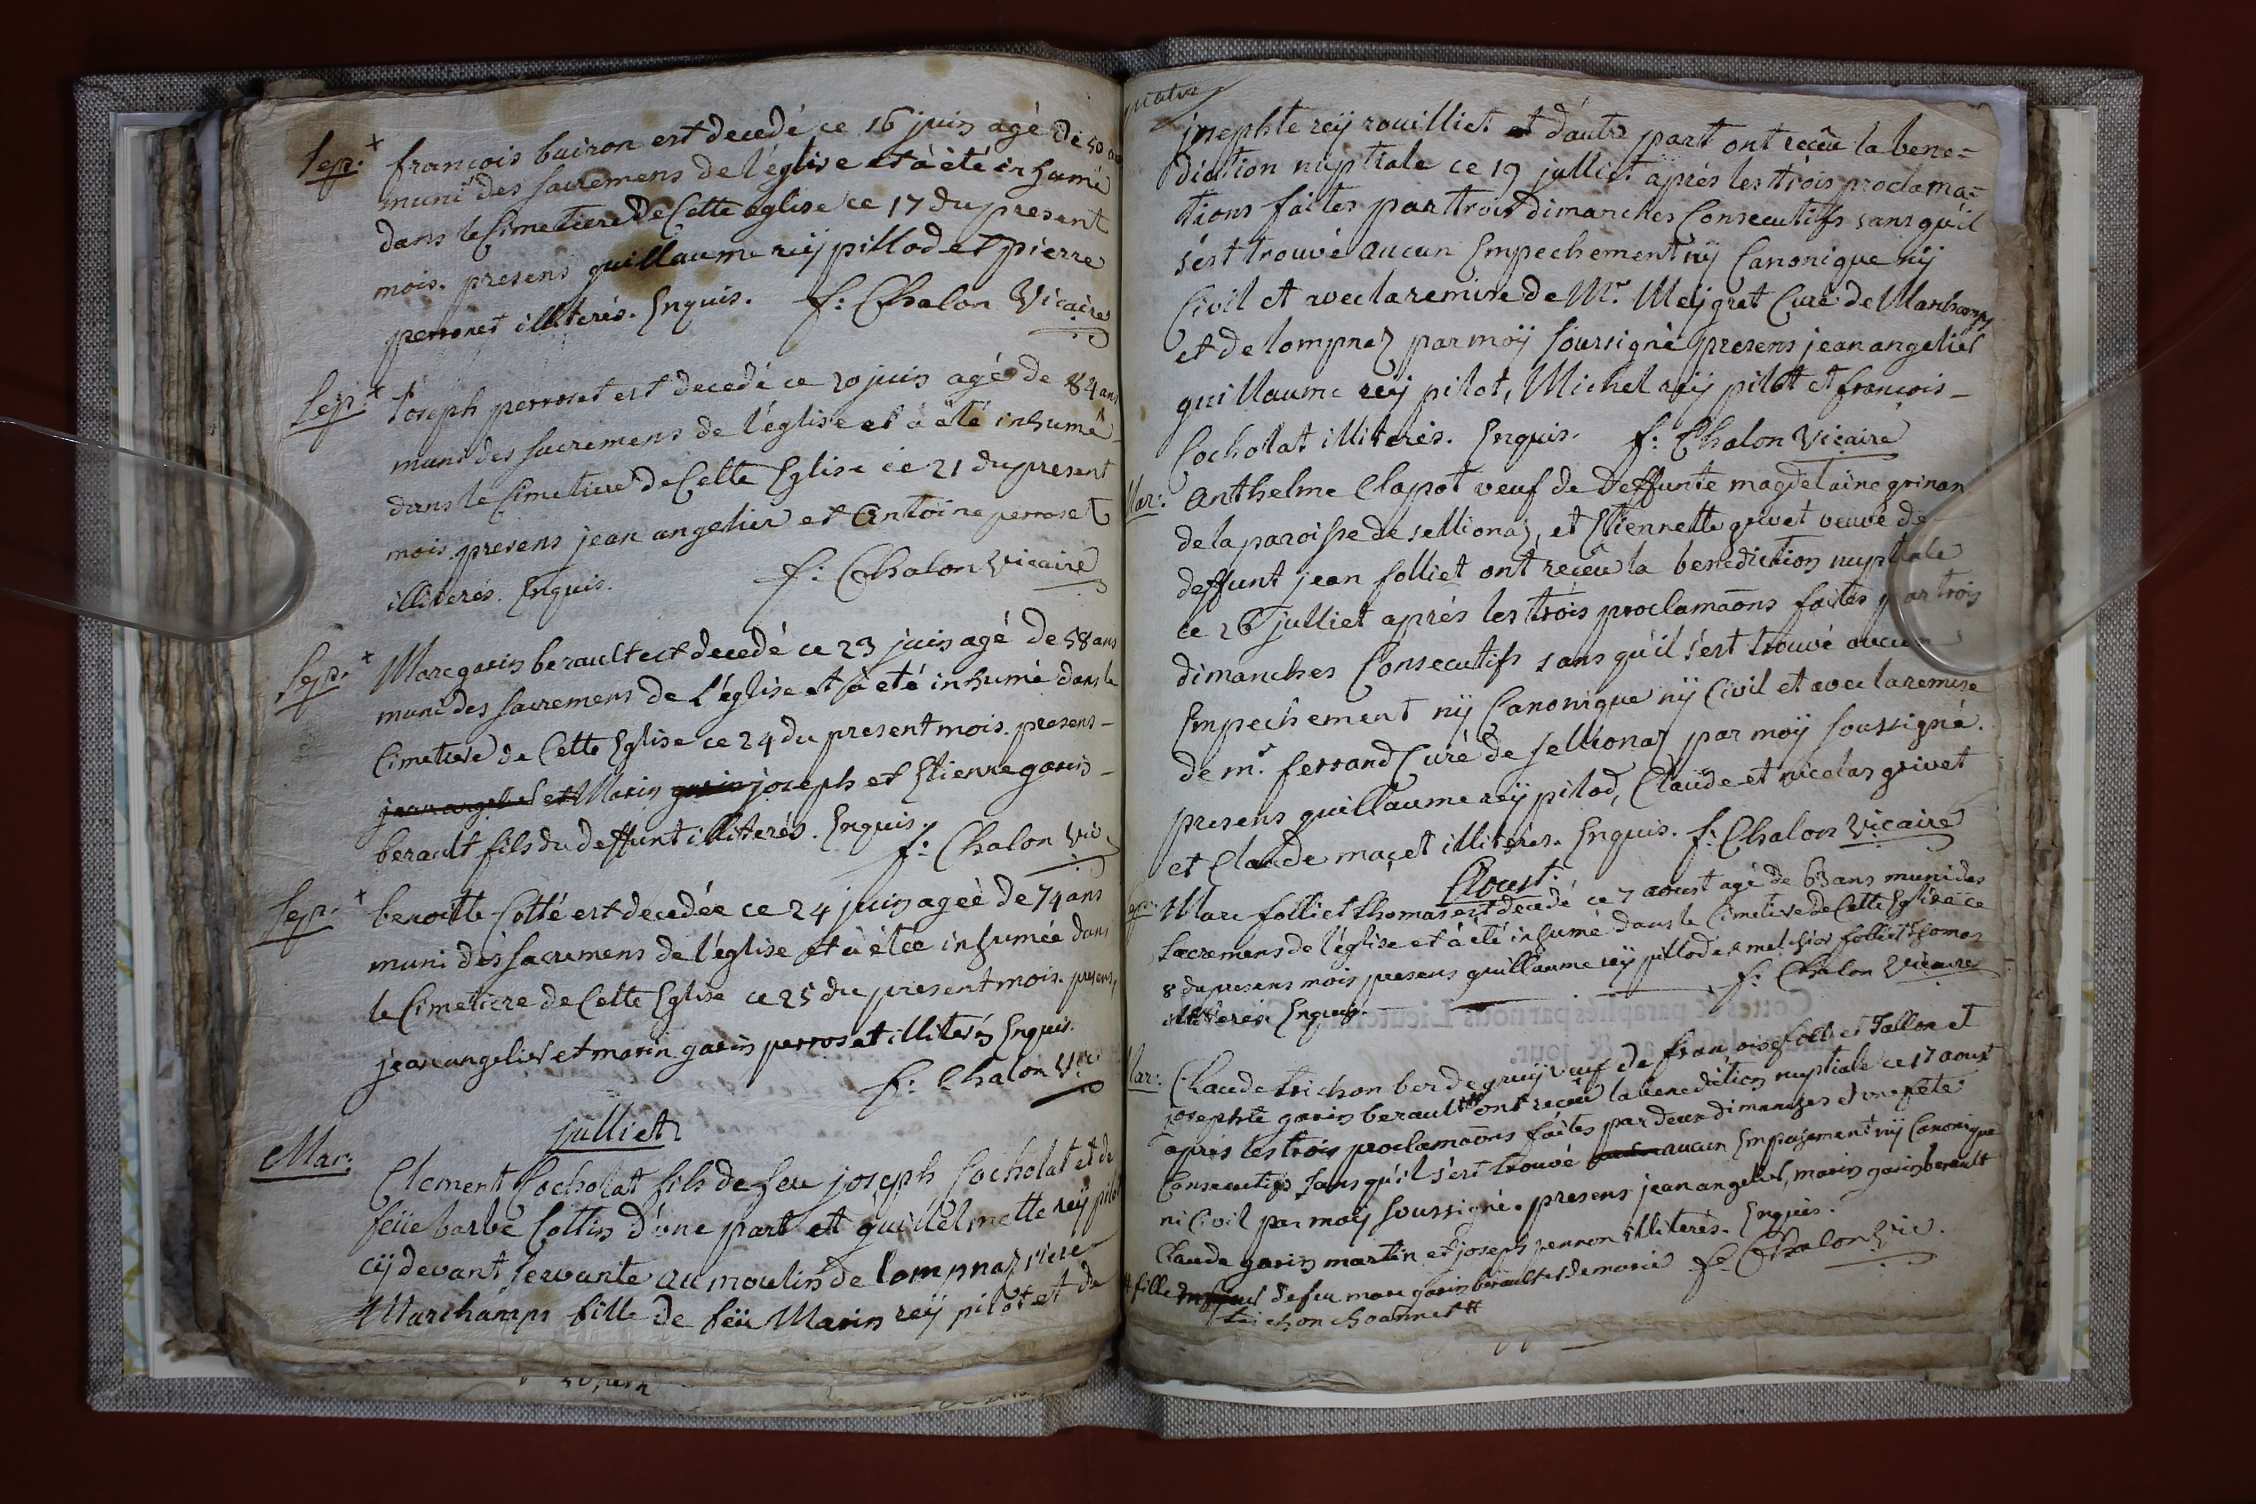 Sep. + françois buiron est decedé ce 16 juin agé de 50 ans
muni des sacremens de l'église et à été inhumé
dans le Cimetiere de Cette eglise ce 17 du present
mois. presens guillaume reÿ pillod et pierre
perroset illiterés. Enquis. f: Chalon Vicaire
Sep. + Joseph perroset est decedé ce 20 juin agé de 84 ans
muni des sacremens de l'église et à été inhumé
dans le Cimetiere de Cette Eglise ce 21 du present
mois presens jean angelier et Antoine perroset
illiterés. Enquis. f: Chalon Vicaire
Sep. + Marc garin berault est decedé ce 23 juin agé de 58 ans
muni des sacremens de l'église et à eté inhumé dans le
Cimetiere de Cette Eglise ce 24 du present mois. presens
jean angelier et Marin garin joseph et Etienne garin
berault fils du deffunt illiterés. Enquis. f: Chalon Vic
Sep. + benoitte Cotté est decedée ce 24 juin ageé de 74 ans
muni des sacremens de l'église et à étée inhumée dans
le Cimetiere de Cette Eglise ce 25 du present mois. presens,
jean angelier et marin garin perroset illiterés Enquis.
f: Chalon Vic
julliet
Mar: Clement Cocholat fils de feu joseph Cocholat et de
feüe barbe Cottin d'une part et guillelmette reÿ pilot
cÿ devant servante au moulin de lompnaz riere
Marchamps fille de feü Marin reÿ pilot et de
quatre
josephte reÿ rouilliet et d'autre part ont reçeu la bene=
diction nuptiale ce 19 julliet après les trois proclama=
tions faites par trois dimanches Consecutifs sans qu'il
s'est trouvé aucun Empechement nÿ Canonique nÿ
Civil et avec la remise de Mr. Meÿgret Curé de Marchamps
et de lompnaz par moÿ soussigné presens jean angelier
guillaume reÿ pilot, Michel reÿ pilot et françois
Cocholat illiterés. Enquis. f: Chalon Vicaire
Mar: Anthelme Clapot veuf de Deffunte magdelaine grinan
de la paroisse de sellionaz, et Etiennette grivet veuve de
deffunt jean folliet ont reçeu la benediction nuptiale
ce 26 julliet après les trois proclamaõns faites par trois
dimanches Consecutifs sans qu'il s'est trouvé aucun
Empechement nÿ Canonique nÿ Civil et avec la remise
de mr. ferrand Curé de sellionaz par moÿ soussigné.
presens guillaume reÿ pilod, Claude et nicolas grivet
et Claude maçet illiterés. Enquis. f: Chalon Vicaire
Aoust.
Marc folliet thomas est decedé ce 7 aoust agé de 63 ans muni des
sacremens de l'église et à été inhumé dans le Cimetiere de Cette Eglise ce
8 du presens mois presens guillaume reÿ pillod et melchior folliet thomas
illiterés. Enquis. f: Chalon Vicaire
Mar: Claude trichon ber de gruÿ veuf de françoise folliet Tallon et
josephte garin berault # ont reçeu la benediction nuptiale ce 17 aoust
après les trois proclamaõns faites par deux dimanches et une fête
Consecutifs sans qu'il s'est trouvé aucun Empechement nÿ Canonique
ni Civil par moÿ soussigné. presens jean angelier, marin garin berault
Claude garin martin et joseph perron illiterés. Enquis.
f: Chalon Vic.
# fille de feu marc garin berault et de marie
trichon choannet #